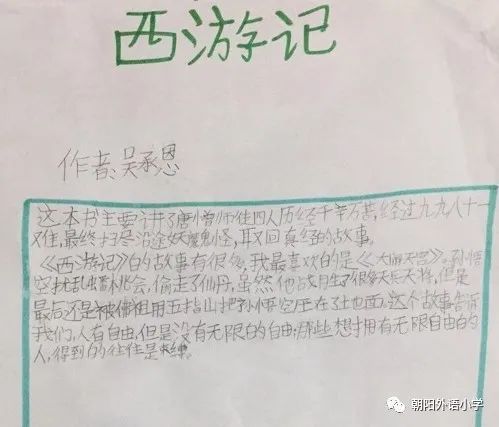 西游记
作者:吴承恩
这本书主要讲了唐僧师徒四人历经千辛万苦,经过九九八十一
难,最终扫尽沿途妖魔鬼怪,取回真经的故事。
《西游记》的故事有很多,我最喜欢的是《大闹天宫》。孙悟
空扰乱蟠桃会,偷走了仙丹,虽然他战月生了很多天兵天将,但是
最后还是被佛祖用五指山把孙悟空压在了土也面,这个故事告诉
我们,人有自由,但是没有无限的自由,那些想拥有无限自由的
人,得到的往往是束缚。
朝阳外语小学